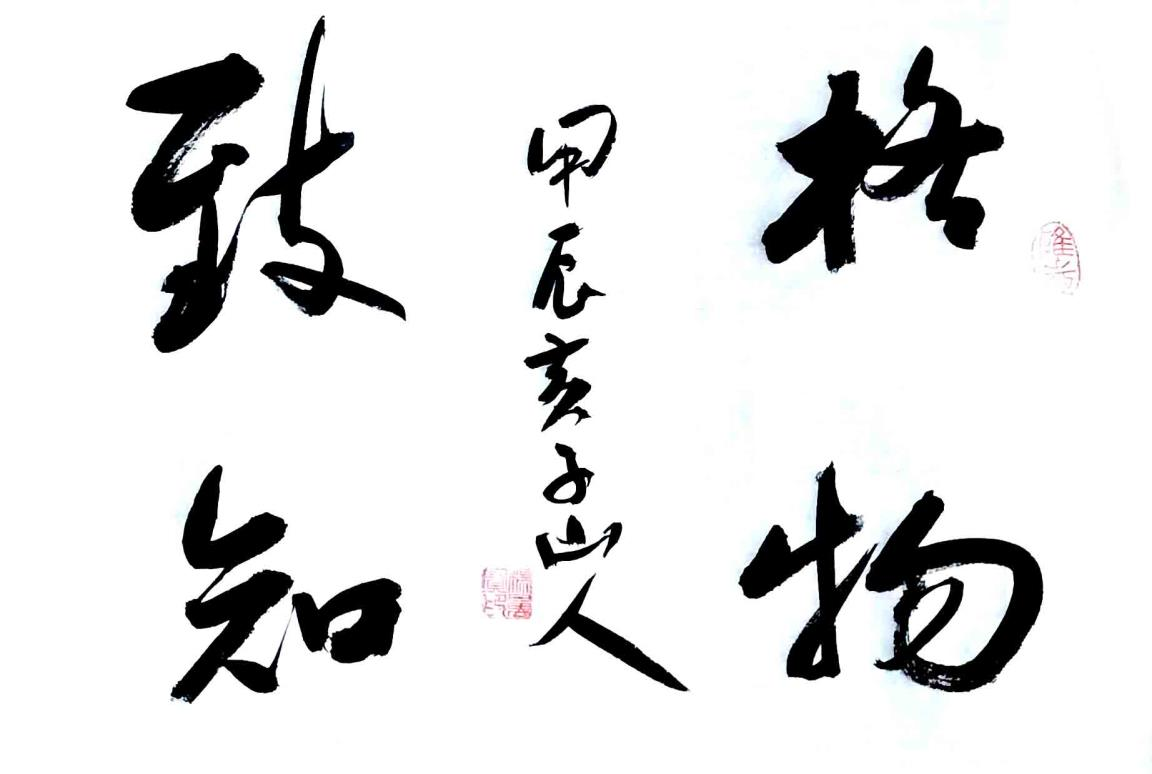 格物
致知
甲辰亥子山人